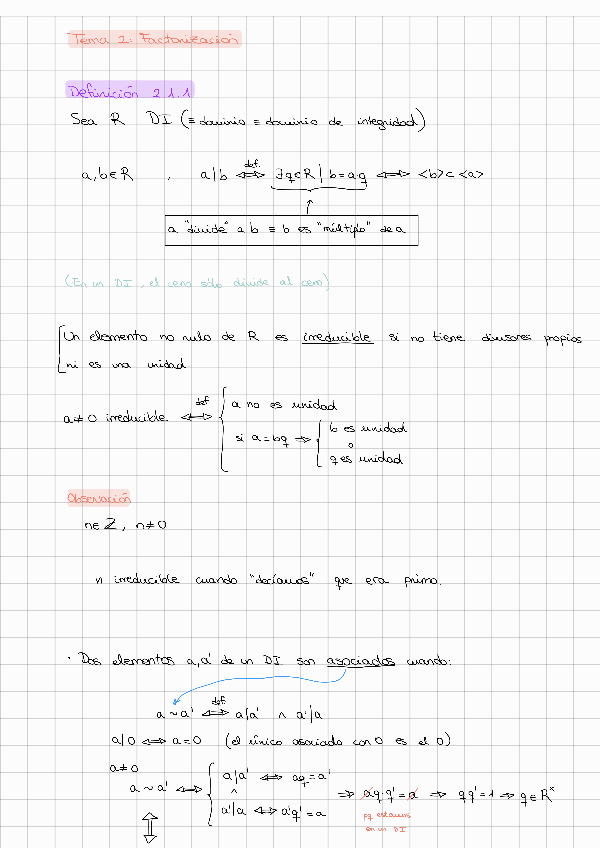 Tema 2: Factorización
Definición 2.1.1
Sea R DI (≡ dominio ≡ dominio de integridad)
a,b∈R , a|b ⟺ def. ∃q∈R | b=aq ⟺ <b>⊂<a>
a "divide" a b ≡ b es "múltiplo" de a
(En un DI, el cero sólo divide al cero)
Un elemento no nulo de R es irreducible si no tiene divisores propios
ni es una unidad
a≠0 irreducible. ⟺ def { a no es unidad
si a=bq ⟹ { b es unidad
o
q es unidad
Observación
n∈ℤ, n≠0
n irreducible cuando "decíamos" que era primo.
· Dos elementos a,a' de un DI son asociados cuando:
a~a' ⟺ def. a|a' ∧ a'|a
a|0 ⟺ a=0 (el único asociado con 0 es el 0)
a≠0
a~a' ⟺ { a|a' ⟺ aq=a'
∧
a'|a ⟺ a'q'=a
⟹ a q·q'=a ⟹ qq'=1 ⟹ q∈R*
pq estamos
en un DI
⇕